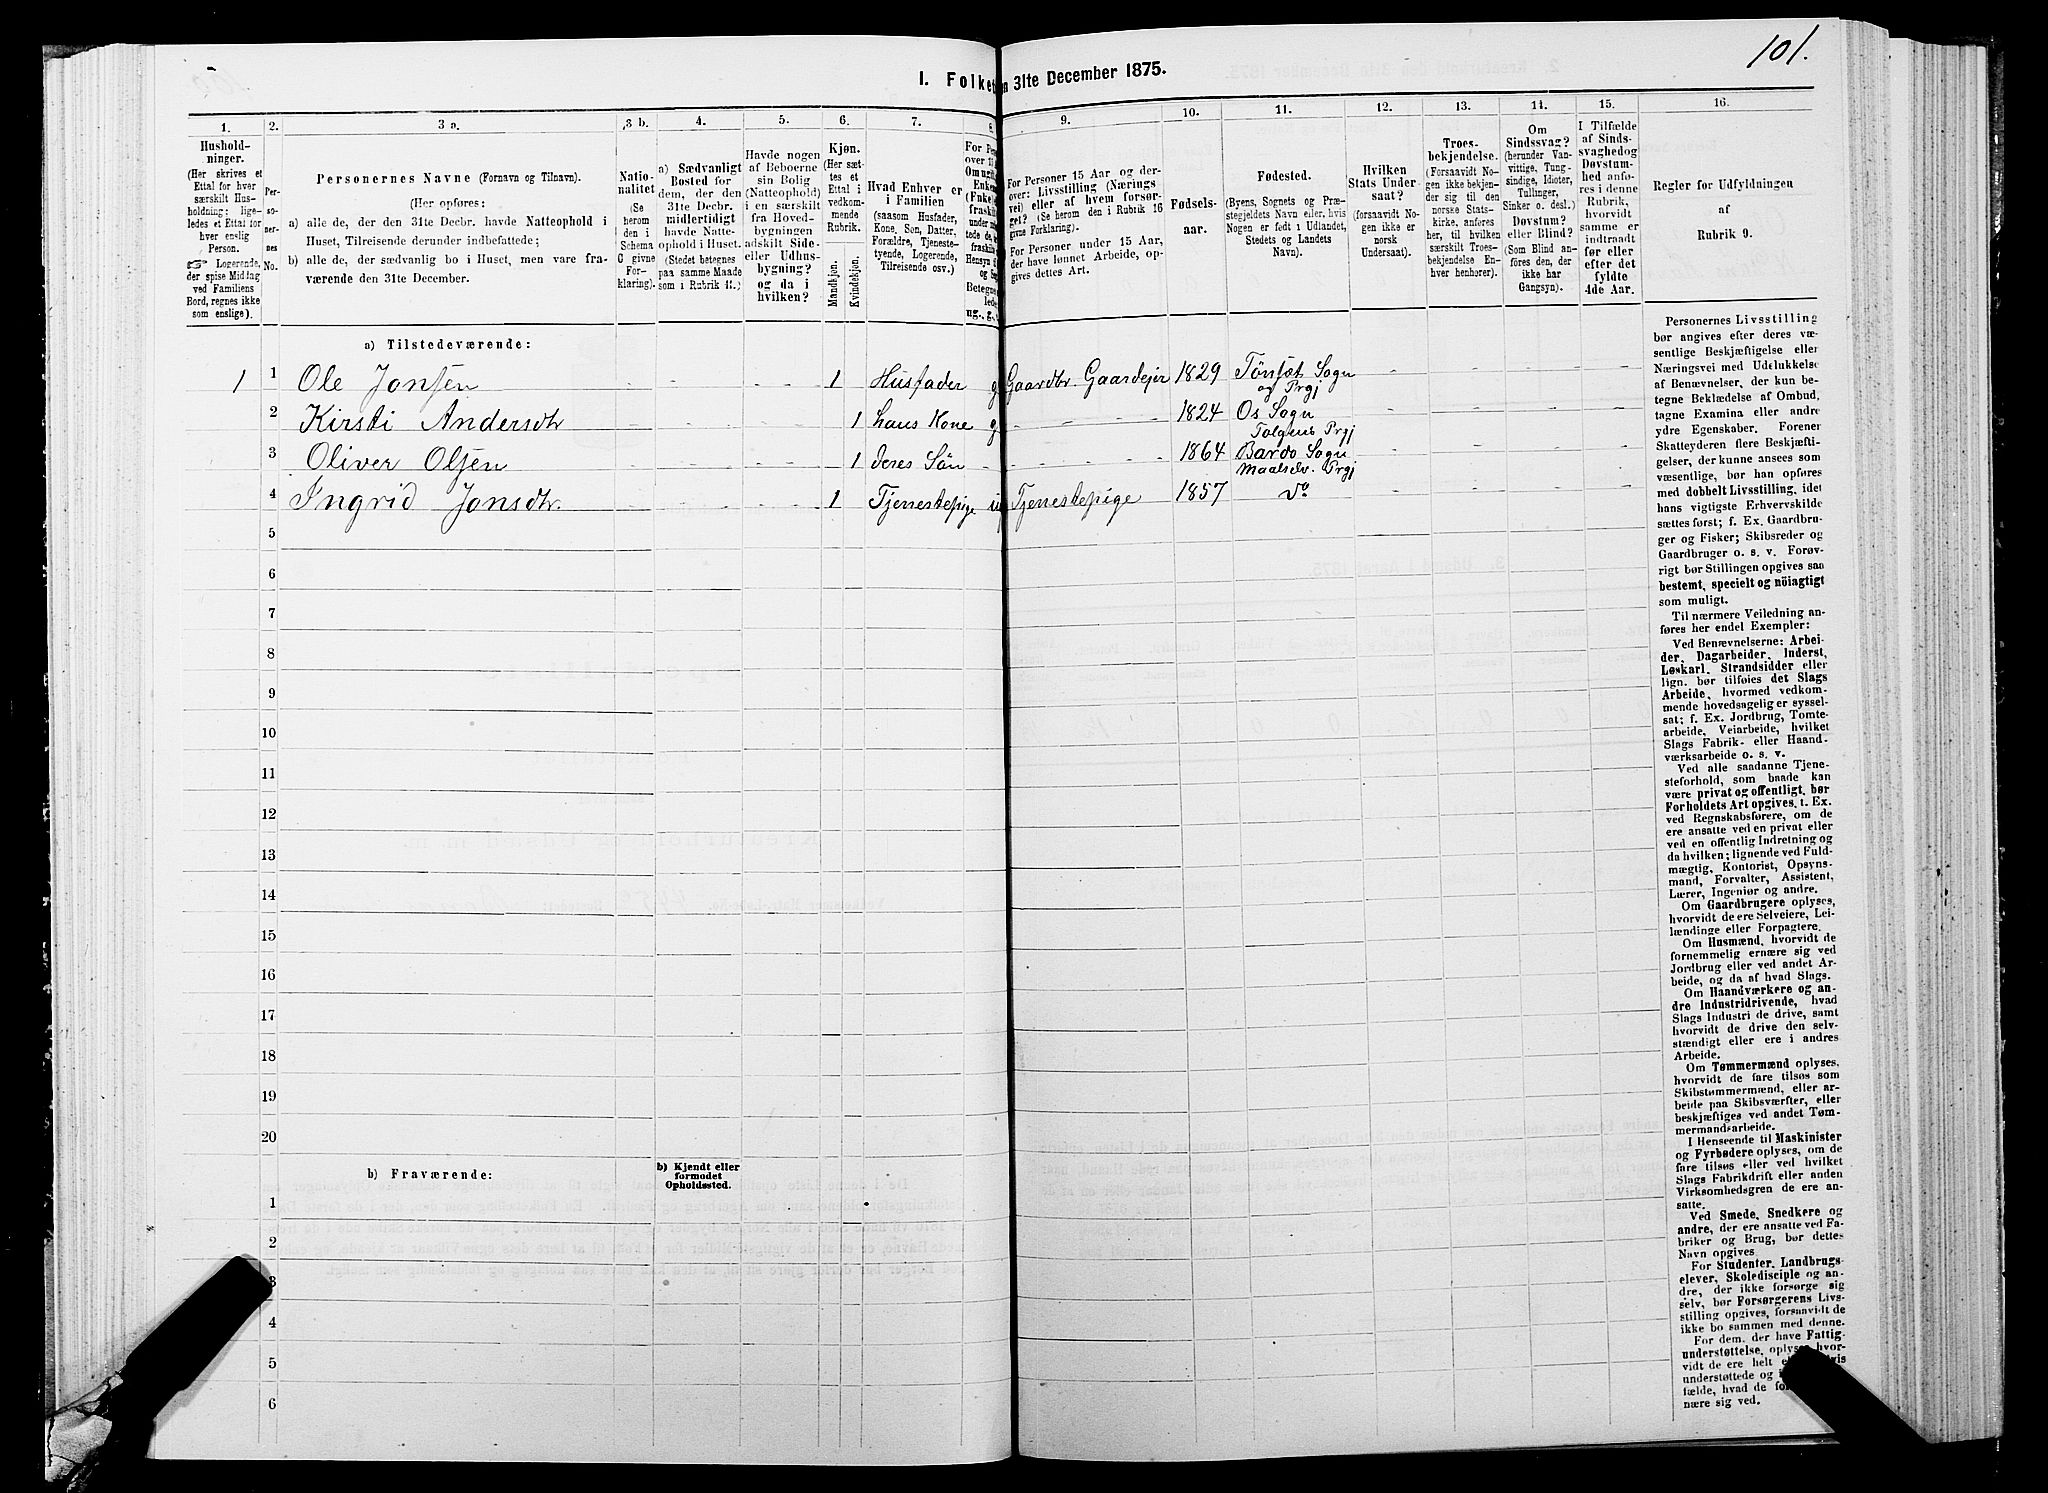 101.
I. Folket
n 31te December 1875.
1.
2.
3 a.
3 b.
4.
5.
6.
7.
8.
9.
10.
11.
12.
13.
14.
15.
16.
Hushold-
ninger.
(Her skrives et
Ettal for hver
særskilt Hus-
holdning; lige-
ledes et Ettal for
hver enslig
Person.
☞ Logerende,
der spise Middag
ved Familiens
Bord, regnes ikke
som enslige).
Per-
so-
ner-
nes
No.
Personernes Navne (Fornavn og Tilnavn).
(Her opføres:
a) alle de, der den 31te Decbr. havde Natteophold i
Huset, Tilreisende derunder indbefattede;
b) alle de, der sædvanlig bo i Huset, men vare fra-
værende den 31te December.
Natio-
nalitet
(Se
herom
den i
Schema
C givne
For-
klaring).
a) Sædvanligt
Bosted for
dem, der den
31te Decbr.
midlertidigt
havde Natte-
ophold i Huset.
(Stedet betegnes
paa samme Maade
som i Rubrik 11.)
Havde nogen
af Beboerne
sin Bolig
(Natteophold)
i en særskilt
fra Hoved-
bygningen
adskilt Side-
eller Udhus-
bygning?
og da i
hvilken?
Kjøn.
(Her sæt-
tes et
Ettal i
vedkom-
mende
Rubrik.
Mandkjøn.
Kvindekjøn.
Hvad Enhver er
i Familien
(saasom Husfader,
Kone, Søn, Datter,
Forældre, Tjeneste-
tyende, Logerende,
Tilreisende osv.)
For Pe
over 1
Om ugi
Enke
(Fukel
fraski
under
tede de,
fraskin
Hensyn
og
Betegne
lede
ug., g.,
For Personer 15 Aar og der-
over: Livsstilling (Nærings
vei) eller af hvem forsør-
get? (Se herom den i Rubrik 16
givne Forklaring).
For Personer under 15 Aar,
der have lønnet Arbeide, op-
gives dettes Art.
Fødsels-
aar.
Fødested.
(Byens, Sognets og Præ-
stegjeldets Navn eller, hvis
Nogen er født i Udlandet,
Stedets og Landets
Navn).
Hvilken
Stats Under-
saat?
(forsaavidt No-
gen ikke er
norsk
Undersaat).
Troes-
bekjendelse.
(Forsaavidt No-
gen ikke bekjen-
der sig til den
norske Stats-
kirke, anføres
her, til hvilken
særskilt Troes-
bekjendelse En-
hver henhører).
Om
Sindssvag?
(herunder Van-
vittige, Tung-
sindige, Idioter,
Tullinger,
Sinker o. desl.)
Døvstum?
eller Blind?
(Som Blind an-
føres den, der
ikke har
Gangsyn).
I Tilfælde
af Sinds-
svaghed og
Døvstum-
hed anfø-
res i denne
Rubrik,
hvorvidt
samme er
indtraadt
før eller
efter det
fyldte
4de Aar.
Regler for Udfyldningen
af
Rubrik 9.
a) Tilstedeværende:
1 1 Ole Jonsen - - - 1 Husfader g Gaardbr. Gaardejer 1829 Tönset Sogn
og Prgj
2 Kirsti Andersdtr - - - 1 hans Kone g - - - 1824 Os Sogn
Tolgens Prgj
3 Oliver Olsen - - - 1 deres Sön - - - - 1864 Bardo Sogn
Maalselv. Prgj
4 Ingrid Jonsdtr. - - - 1 Tjenestepige ug Tjenestepige 1857 do
5
6
7
8
9
10
11
12
13
14
15
16
17
18
19
20
b) Fraværende:
b) Kjendt eller
formodet
Opholdssted.
1
2
3
4
5
6
Personernes Livsstilling
bør angives efter deres væ-
sentlige Beskjæftigelse eller
Næringsvei med Udelukkelse
af Benævnelser, der kun be-
tegne Beklædelse af Ombud,
tagne Examina eller andre
ydre Egenskaber. Forener
Skatteyderen flere Beskjæfti-
gelser, der kunne ansees som
væsentlige, bør han opføres
med dobbelt Livsstilling, idet
hans vigtigste Erhvervskilde
sættes først; f. Ex. Gaardbru-
ger og Fisker; Skibsreder og
Gaardbruger o. s. v. Forøv-
rigt bør Stillingen opgives saa
bestemt, specielt og nöiagtigt
som muligt.
Til nærmere Veiledning an-
føres her endel Exempler:
Ved Benævnelserne: Arbei-
der, Dagarbeider, Inderst,
Løskarl, Strandsidder eller
lign. bør tilføies det Slags
Arbeide, hvormed vedkom-
mende hovedsagelig er syssel-
sat; f. Ex. Jordbrug, Tomte-
arbeide, Veiarbeide, hvilket
Slags Fabrik- eller Haand-
værksarbeide o. s. v.
Ved alle saadanne Tjene-
steforhold, som baade kan
være privat og offentligt, bør
Forholdets Art opgives, t. Ex.
ved Regnskabsførere, om de
ere ansatte ved en privat eller
ved en offentlig Indretning og
da hvilken; lignende ved Fuld-
mægtig, Kontorist, Opsyns-
mand, Forvalter, Assistent,
Lærer, Ingeniør og andre.
Om Gaardbrugere oplyses,
hvorvidt de ere Selveiere, Lei-
lændinge eller Forpagtere.
Om Husmænd, hvorvidt de
fornemmelig ernære sig ved
Jordbrug eller ved andet Ar-
beide, og da af hvad Slags.
Om Haandværkere og an-
dre Industridrivende, hvad
Slags Industri de drive, samt
hvorvidt de drive den selv-
stændigt eller ere i andres
Arbeide.
Om Tømmermænd oplyses,
hvorvidt de fare tilsøs som
Skibstømmermænd, eller ar-
beide paa Skibsværfter, eller
beskjæftiges ved andet Tøm-
mermandsarbeide.
I Henseende til Maskinister
og Fyrbødere oplyses, om de
fare tilsøs eller ved hvilket
Slags Fabrikdrift eller anden
Virksomhedsgren de ere an-
satte.
Ved Smede, Snedkere og
andre, der ere ansatte ved Fa-
briker og Brug, bør dettes
Navn opgives
For Studenter, Landbrugs-
elever, Skoledisciple og an-
dre, der ikke forsørge sig
selv, bør Forsørgerens Livs-
stilling opgives, forsaavidt de
ikke bo sammen med denne.
For dem, der have Fattig-
understøttelse, oplyses hvor-
vidt de ere helt e
understøttede og i
fælde, hvad de fo
nære sig ved.